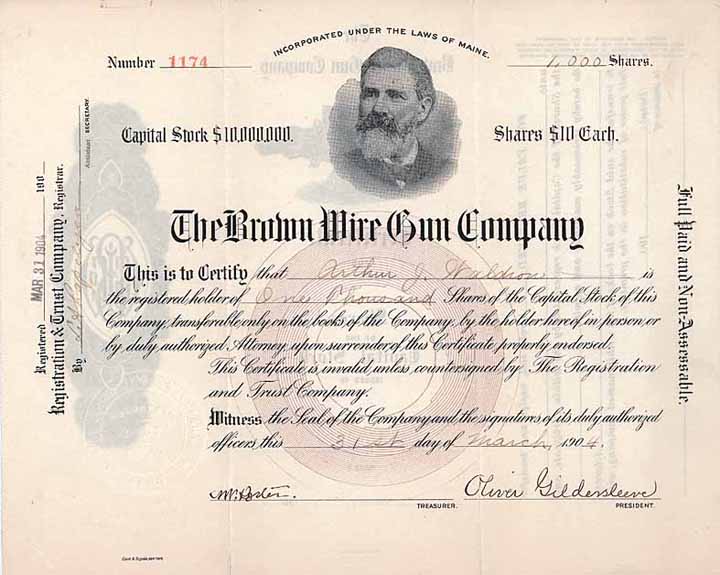 INCORPORATED UNDER THE LAWS OF MAINE.
Number 1174
1,000 Shares.
Capital Stock $10,000,000.
Shares $10 Each.
The Brown Wire Gun Company
This is to Certify that Arthur J. Waldron is
the registered holder of One Thousand Shares of the Capital Stock of this
Company, transferable only on the books of the Company, by the holder hereof in person, or
by duly authorized Attorney, upon surrender of this Certificate properly endorsed.
This Certificate is invalid unless countersigned by The Registration
and Trust Company.
Witness the Seal of the Company and the signatures of its duly authorized
officers, this 31st day of March, 1904.
TREASURER.
Oliver Gildersleeve
PRESIDENT.
Registered MAR 31 1904 190
Registration & Trust Company, Registrar.
By
Assistant SECRETARY.
Full Paid and Non-Assessable.